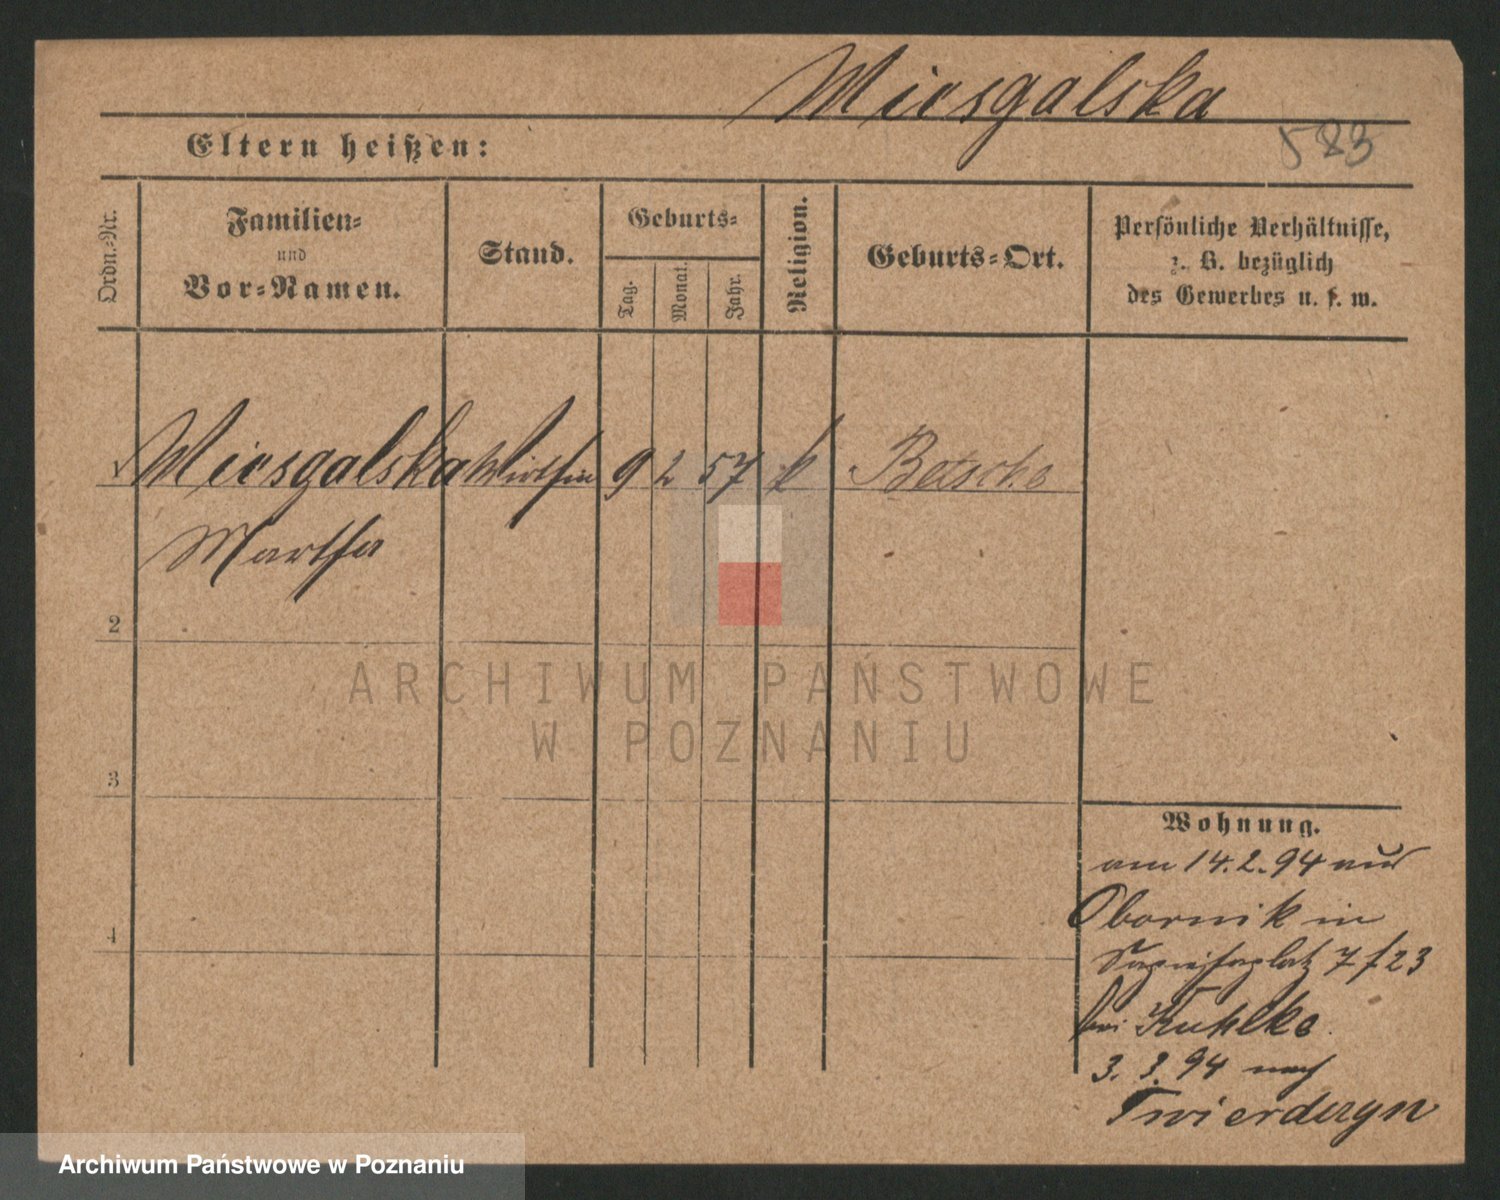 Miesgalska
523
Eltern heißen:
Ordn.-Nr.
Familien-
und
Vor-Namen.
Stand.
Geburts-
Tag.
Monat.
Jahr.
Religion.
Geburts-Ort.
Persönliche Verhältnisse,
z. B. bezüglich
des Gewerbes u. s. w.
1 Miesgalska Wirthin 9 2 57 k Betsche
Martha
2
3
4
Wohnung.
am 14.2.94 aus
Obornik in
Sapiehaplatz 7 f 23
bei Kuhlke
3. 3. 94 nach
ARCHIWUM PAŃSTWOWE
W POZNANIU
Archiwum Państwowe w Poznaniu